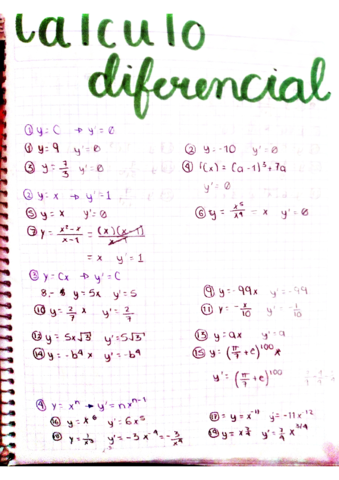 Calculo
diferencial
① y = C → y' = 0
① y = 9 y' = 0 ② y = -10 y' = 0
③ y = 7/3 y' = 0 ④ f(x) = (a-1)³ + 7a
y' = 0
② y = x → y' = 1
⑤ y = x y' = 0 ⑥ y = x⁵/x⁴ = x y' = 0
⑦ y = x²-x/x-1 = (x)(x-1)/x-1
= x y' = 1
③ y = Cx → y' = C
8.- y = 5x y' = 5 ⑨ y = -99x y' = -99
⑩ y = 2/7 x y' = 2/7 ⑪ y = -x/10 y' = -1/10
y = 5x√3 y' = 5√3 ⑬ y = ax y' = a
⑭ y = -b⁴x y' = -b⁴ ⑮ y = (π/7 + e)¹⁰⁰ x
y' = (π/7 + e)¹⁰⁰
④ y = xⁿ → y' = nxⁿ⁻¹
⑯ y = x⁶ y' = 6x⁵ ⑰ = y = x⁻¹¹ y' = -11x¹²
y = 1/x³ y' = -3x⁻⁴ = -3/x⁴ y = x 7/4 y' = 7/4 x³/⁴